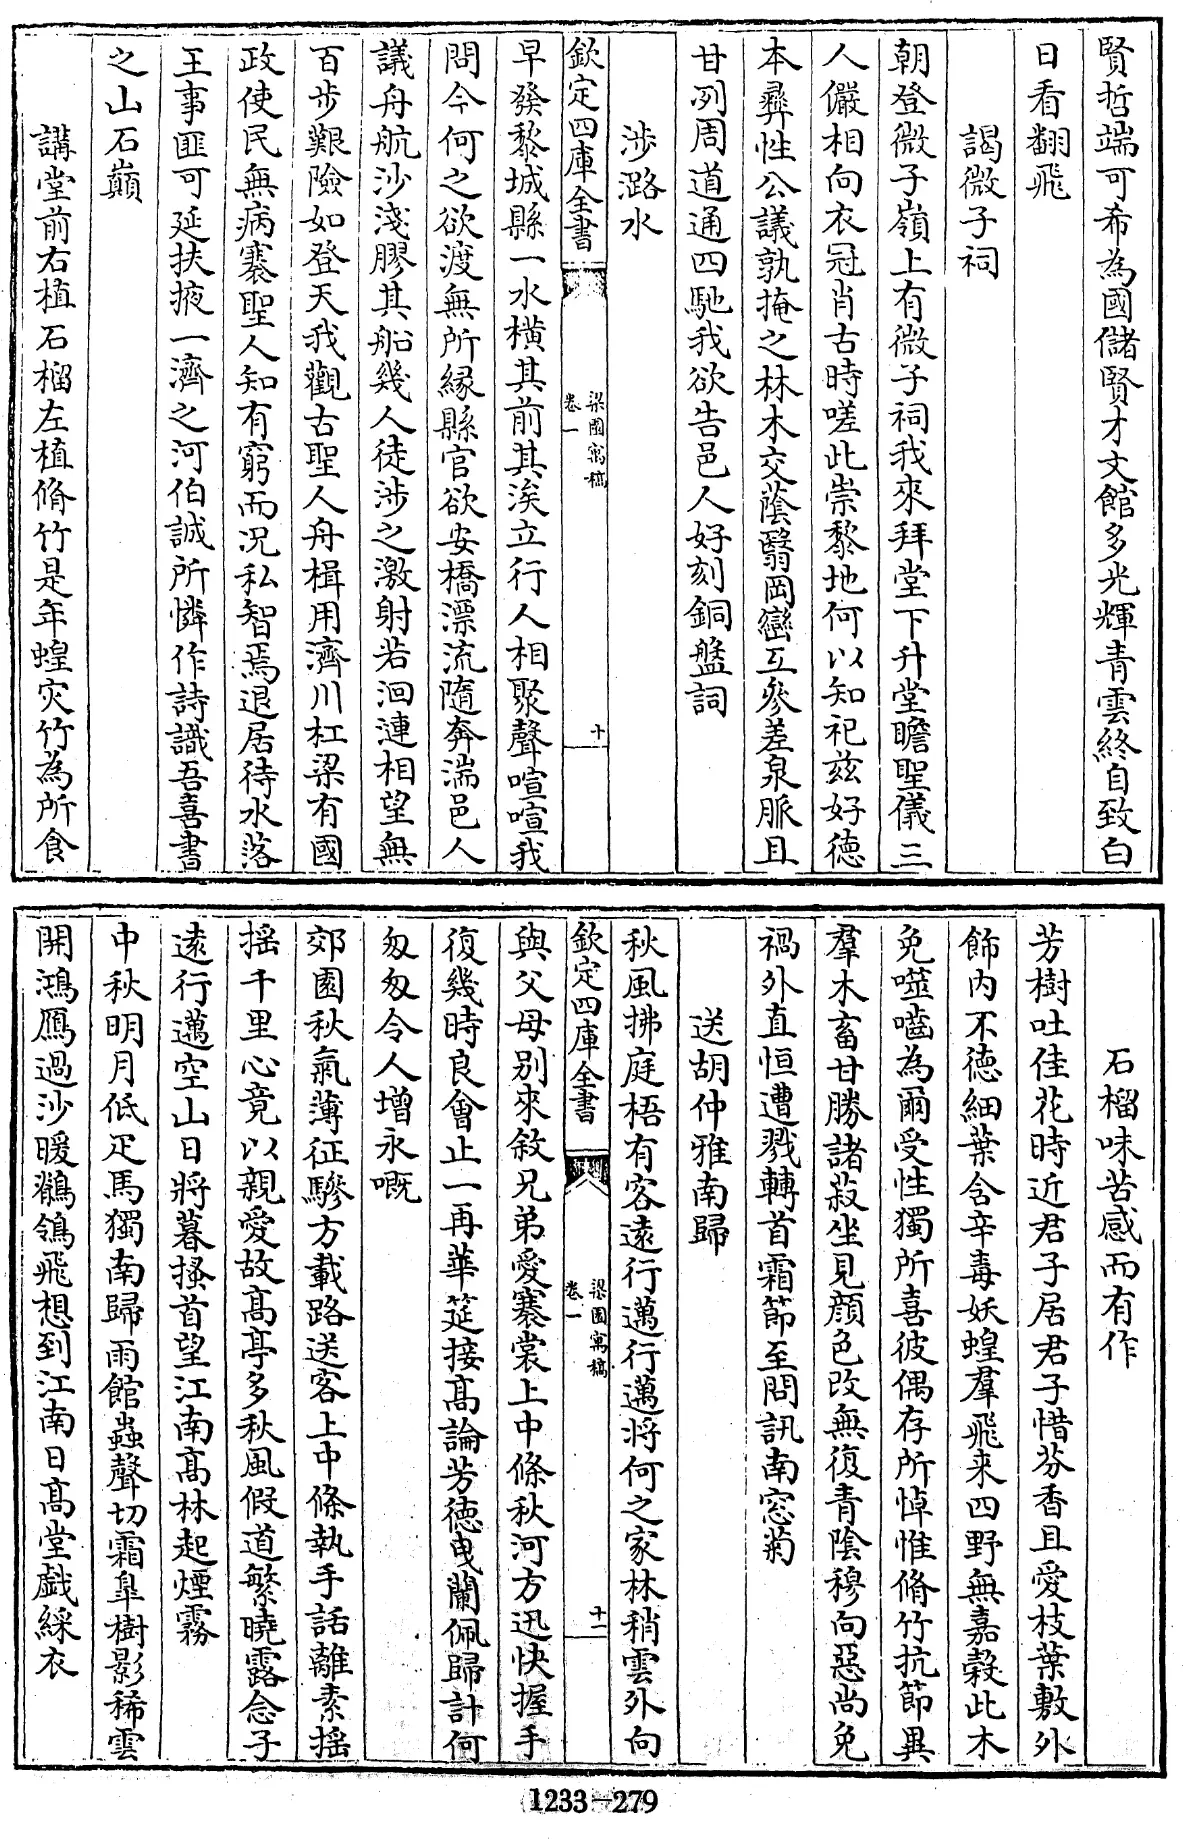 賢哲端可希為國儲賢才文館多光輝青雲終自致白
日看翻飛
謁微子祠
朝登微子嶺上有微子祠我來拜堂下升堂瞻聖儀三
人儼相向衣冠肖古時嗟此崇黎地何以知祀兹好德
本彛性公議孰掩之林木交蔭翳岡巒互參差泉脈且
甘冽周道通四馳我欲告邑人好刻銅盤詞
涉潞水
欽定四庫全書
梁園寓稿
卷一
十
早發黎城縣一水横其前其涘立行人相聚聲喧喧我
問今何之欲渡無所縁縣官欲安橋漂流隨奔湍邑人
議舟航沙淺膠其船幾人徒涉之激射若洄漣相望無
百步艱險如登天我觀古聖人舟楫用濟川杠梁有國
政使民無病褰聖人知有窮而况私智焉退居待水落
王事匪可延扶掖一濟之河伯誠所憐作詩識吾喜書
之山石巔
講堂前右植石榴左植脩竹是年蝗灾竹為所食
石榴味苦感而有作
芳樹吐佳花時近君子居君子惜芬香且愛枝葉敷外
飾内不德細葉含辛毒妖蝗羣飛来四野無嘉榖此木
免噬嚙為爾受性獨所喜彼偶存所悼惟脩竹抗節異
羣木畜甘勝諸蔌坐見顔色改無復青陰穆向惡尚免
禍外直恒遭戮轉首霜節至問訊南窓菊
送胡仲雅南歸
秋風拂庭梧有客遠行邁行邁將何之家林稍雲外向
欽定四庫全書
梁園寓稿
卷一
十一
與父母别來敘兄弟愛褰裳上中條秋河方迅快握手
復幾時良會止一再華筵接髙論芳德曳蘭佩歸計何
匆匆令人增永嘅
郊園秋氣薄征驂方載路送客上中條執手話離素摇
摇千里心竟以親愛故髙亭多秋風假道繁曉露念子
遠行邁空山日將暮搔首望江南髙林起煙霧
中秋明月低疋馬獨南歸雨館蟲聲切霜臯樹影稀雲
開鴻鴈過沙暖鶺鴒飛想到江南日髙堂戯綵衣
1233-279